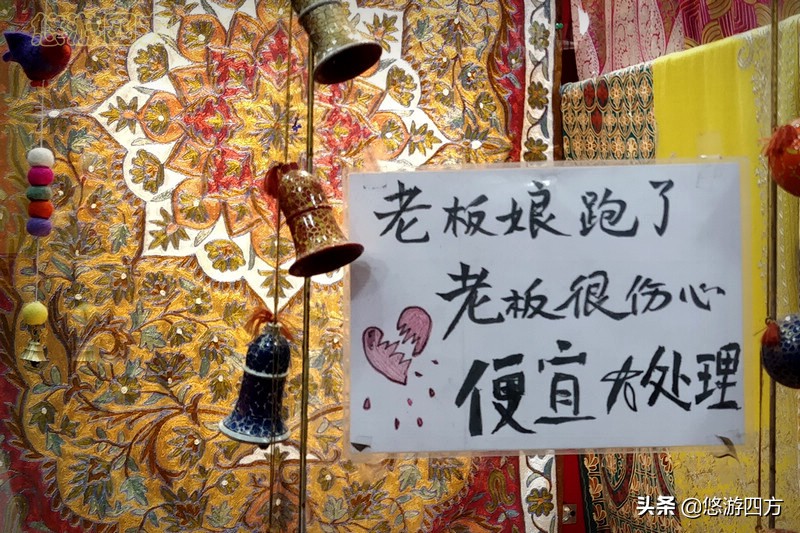 老板娘跑了
老板很伤心
便宜大处理
头条 @悠游四方